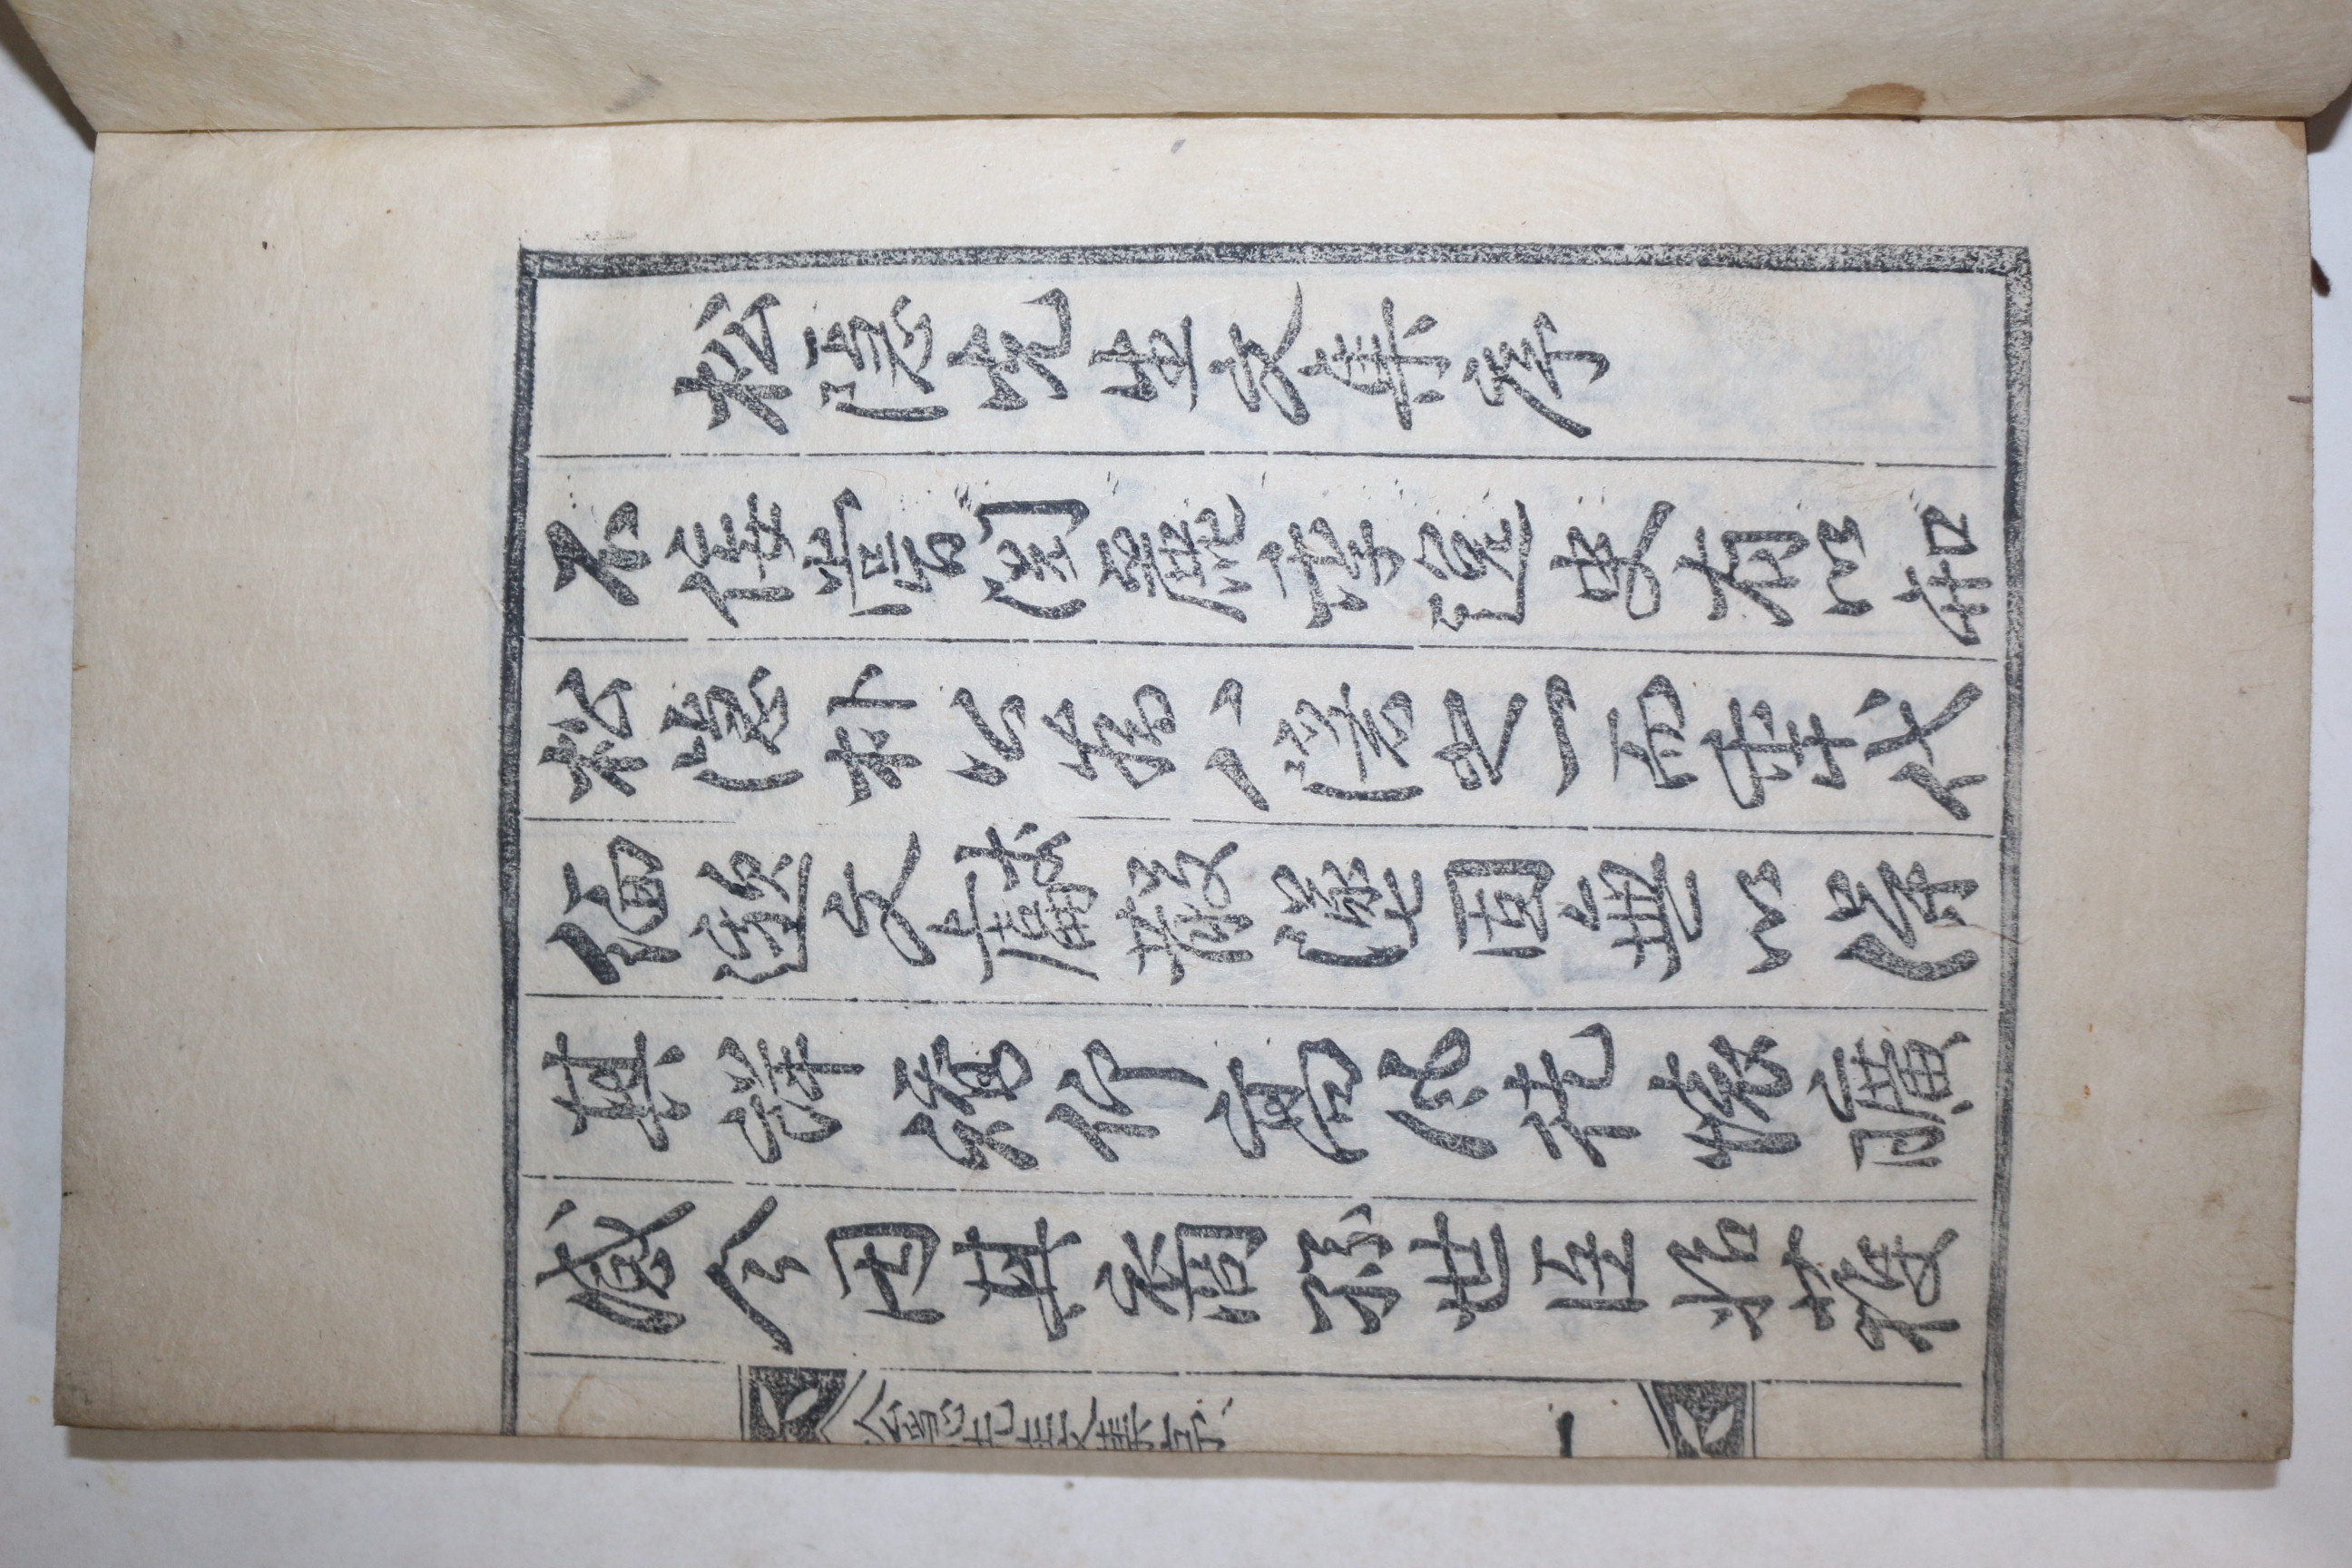 松隱先生文集序
不佞嘗閱麗季逸史有以知
松隱朴公爲八隱之一而年代
緬邈文獻散墜固無以得
其詳矯仰高風徒懷曠
感今因其裔孫世臣始獲